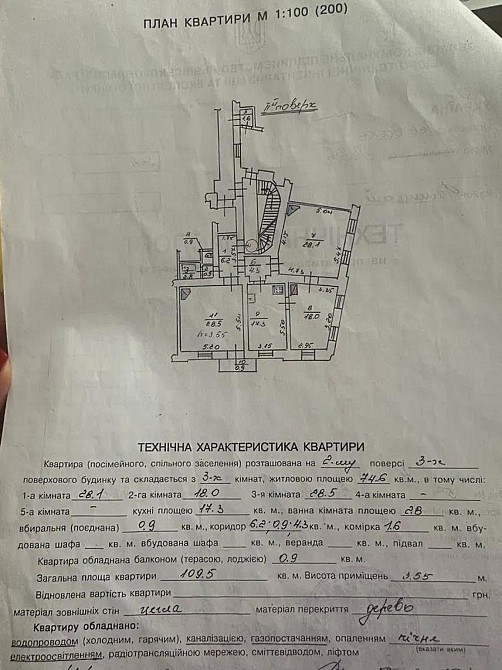 ПЛАН КВАРТИРИ М 1:100 (200)
IIий поверх
1.6
7
28.1
4.73
6
4.3
1
6.2
0.9
8
18.0
3.35
2.95
9
17.3
5.50
3.15
11
28.5
h=3.55
5.20
10
0.9
ТЕХНІЧНА ХАРАКТЕРИСТИКА КВАРТИРИ
Квартира (посімейного, спільного заселення) розташована на 2-му поверсі 3-х
поверхового будинку та складається з 3-х кімнат, житловою площею 74.6 кв.м., в тому числі:
1-а кімната 28.1 2-га кімната 18.0 3-я кімната 28.5 4-а кімната –
5-а кімната – кухні площею 17.3 кв. м., ванна кімната площею 2.8 кв. м.,
вбиральня (поєднана) 0,9 кв. м., коридор 6.2; 0,9; 4.3 кв. м., комірка 1.6 кв. м. вбу-
дована шафа кв. м. вбудована шафа кв. м., веранда кв. м., підвал кв. м.
Квартира обладнана балконом (терасою, лоджією) 0.9 кв. м.
Загальна площа квартири 109.5 кв. м. Висота приміщень 3.55 м.
Відновлена вартість квартири грн.
матеріал зовнішніх стін цегла матеріал перекриття дерево
Квартиру обладнано:
водопроводом (холодним, гарячим), каналізацією, газопостачанням, опаленням пічне
(вказати яким)
електроосвітленням, радіотрансляційною мережею, сміттєвідводом, ліфтом